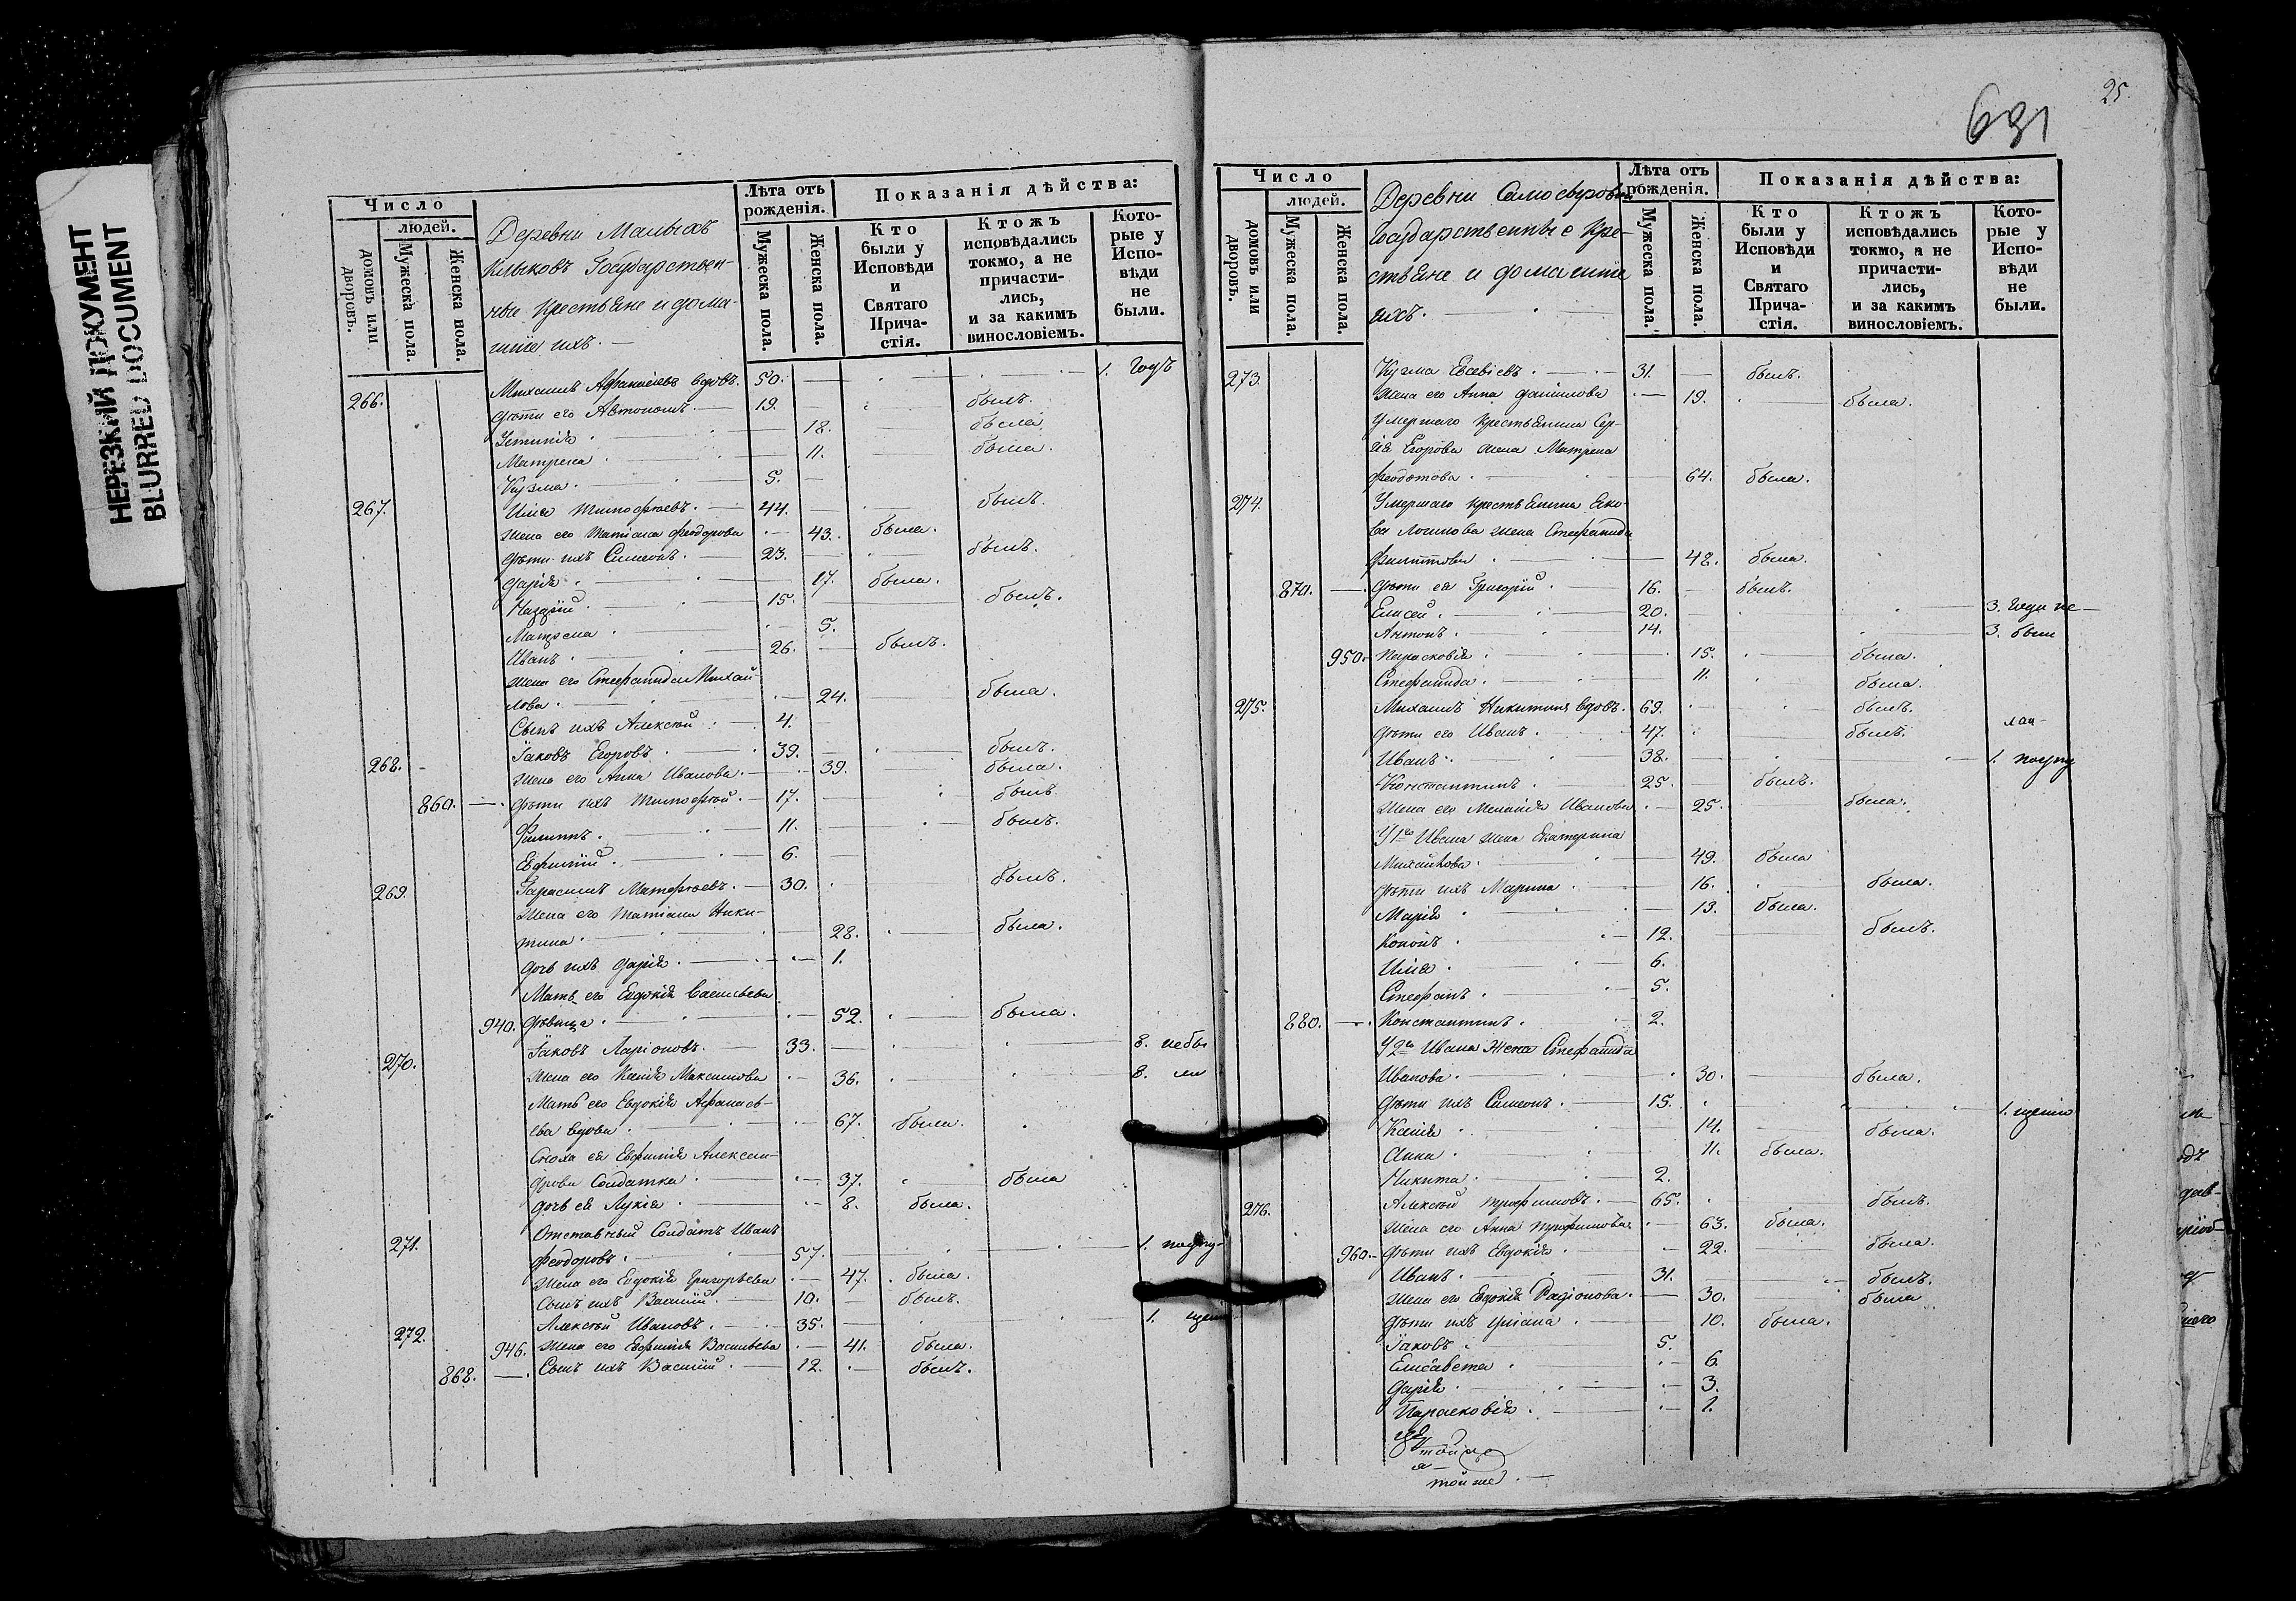 НЕРЕЗКИЙ ДОКУМЕНТ
BLURRED DOCUMENT
Число
людей.
домовъ или дворовъ.
Мужеска пола.
Женска пола.
Деревни Малыхъ
Клыковъ Государствен-
ные крестьяне и дома-
шніе ихъ.
Лѣта отъ рожденія.
Мужеска пола.
Женска пола.
Показанія дѣйства:
Кто были у Исповѣди и Святаго Прича-стія.
Ктожъ исповѣдались токмо, а не причасти-лись, и за какимъ винословіемъ.
Кото-рые у Испо-вѣди не были.
266. Михаилъ Афанасьевъ вдовъ. 50. 1. годъ
дѣти его Автономъ. 19. былъ.
Устинія 18. была
Матрена 11. была.
Кузма 5.
267. Илія Тимофѣевъ. 44. былъ.
жена его Татіана Феодорова 43. была.
дѣти ихъ Симеонъ. 23. былъ.
Дарія 17. была.
15. былъ.
Матрена 5.
Иванъ 26. былъ.
жена его Стефанида Михай-
лова 24. была.
Сынъ ихъ Алексѣй 4.
268. Іаковъ Егоровъ 39. былъ.
жена его Анна Иванова. 39. была.
860. дѣти ихъ Тимофѣй. 17. былъ
Филиппъ. 11. былъ.
Евфимій 6.
269. Гарасимъ Матфѣевъ. 30. былъ.
жена его Татіана Ники-
тина 28. была.
дочь ихъ Дарія 1.
Мать его Евдокія Васильева
940. дѣвица 52. была.
270. Іаковъ Ларіоновъ. 33. 8. не бы
жена его Ксенія Максимова 36. 8. ли
Мать его Евдокія Афанась-
ева вдова 67. была.
Сноха ея Евфимія Алексан-
дрова Солдатка 37. была
дочь ея Лукія 8. была.
271. Отставный Солдатъ Иванъ
Феодоровъ. 57. 1. поупу-
жена его Евдокія Григорьева 47. была.
Сынъ ихъ Василій. 10. былъ.
272. Алексѣй Ивановъ. 35. 1. щенію
946. жена его Евфимія Васильева 41. была.
868. Сынъ ихъ Василій 12. былъ.
25.
631
Число
людей.
домовъ или дворовъ.
Мужеска пола.
Женска пола.
Деревни Самосвѣровой
Государственные кре-
стьяне и домашніе
ихъ.
Лѣта отъ рожденія.
Мужеска пола.
Женска пола.
Показанія дѣйства:
Кто были у Исповѣди и Святаго Прича-стія.
Ктожъ исповѣдались токмо, а не причасти-лись, и за какимъ винословіемъ.
Кото-рые у Испо-вѣди не были.
273. Кузма Евсевіевъ 31. былъ.
жена его Анна Данилова 19. была.
Умершаго крестьянина Сер-
гія Егорова жена Матрена
Феодотова 64. была.
274. Умершаго крестьянина
жена Стефанида
Филиппова 48. была.
870. дѣти ея Григорій 16. былъ.
Елисей 20. 3. года не
Антонъ 14. 3. были
950. Параскевія 15. была.
Стефанида 11. была.
275. Михаилъ Никитинъ вдовъ. 69. былъ.
дѣти его Иванъ 47. былъ.
Иванъ 38. 1. поупу
Константинъ 25. былъ.
жена его Меланія Иванова 25. была.
У 1го Ивана жена Екатерина
Михайлова 49. была
дѣти ихъ Марина 16. была.
Марія 13. была.
Кононъ 12. былъ.
Илія 6.
Стефанъ 5.
880. Константинъ 2.
У 2го Ивана Жена Стефанида
Иванова 30. была.
дѣти ихъ Симеонъ 15. 1. щенію
Ксенія 14. была.
Анна 11. была.
Никита 2.
276. Алексѣй Трофимовъ 65. былъ.
жена его Анна Трофимова 63. была.
960. дѣти ихъ Евдокія 22. была.
Иванъ 31. былъ.
жена его Евдокія Радіонова. 30. была
дѣти ихъ 10. была.
Іаковъ 5.
Елисавета 6.
Дарія 3.
Параскевія 1.